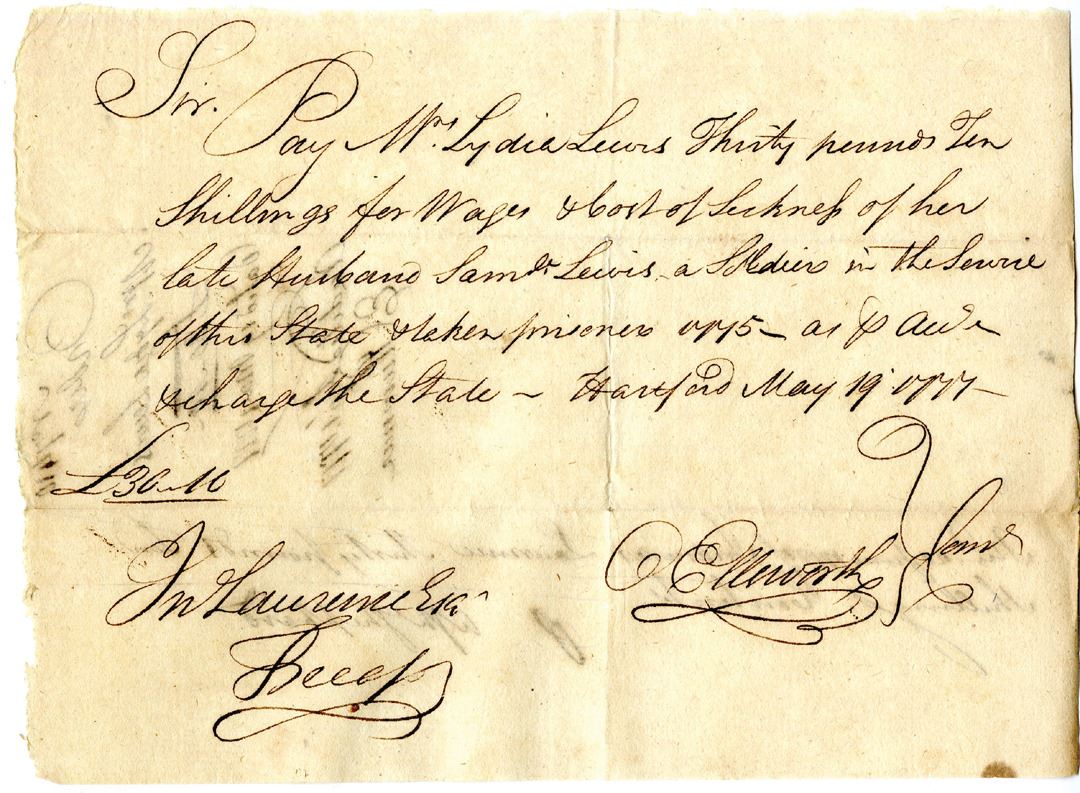 Sir.
Pay Mrs. Lydia Lewis Thirty pounds Ten
Shillings for Wages & Cost of Sickness of her
late Husband Saml. Lewis a Soldier in the Service
of this State & taken prisoner 1775 – as P Acct.
& charge the State – Hartford May 19 1777 –
£30..10
O Ellsworth } Comte
Jn Lawrence Esqr